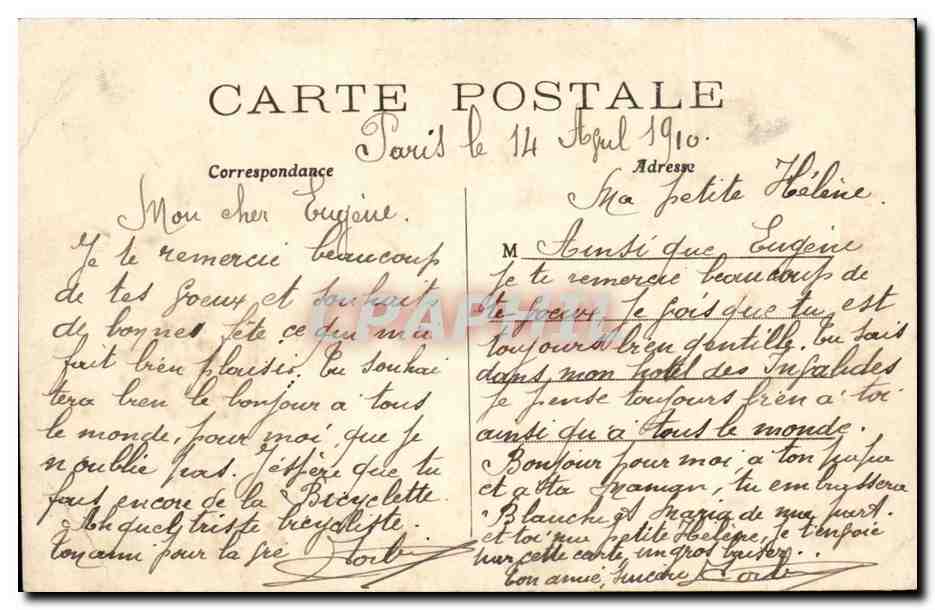 CARTE POSTALE
Paris le 14 Agul 1910.
Correspondance
Mon cher Eugène.
Je te remercie beaucoup
de tes goeux et souhaits
de bonnes fête ce qui m'a
fait bien plaisir. Tu souhai
tera bien le bonjour à tous
le monde, pour moi, que je
n'oublie pas. J'éspère que tu
fais encore de la Bicyclette
Ah quel triste bicycliste.
ton ami pour la gie
Adresse
Ma petite Hélène.
M Ainsi que Eugène
Je te remercie beaucoup de
te goeux. Je gois que tu est
toujours bien gentille. Tu sais
dans mon hotel des Ingalides
Je pense toujours bien a toi
ainsi qu'a tous le monde.
Bonjour pour moi a ton papa
et a ta maman, tu embrassera
Blanche et Maria de ma part.
et toi ma petite Hélène, je t'engoie
sur cette carte, un gros baiser...
ton amie, sincère
CPAPHIL